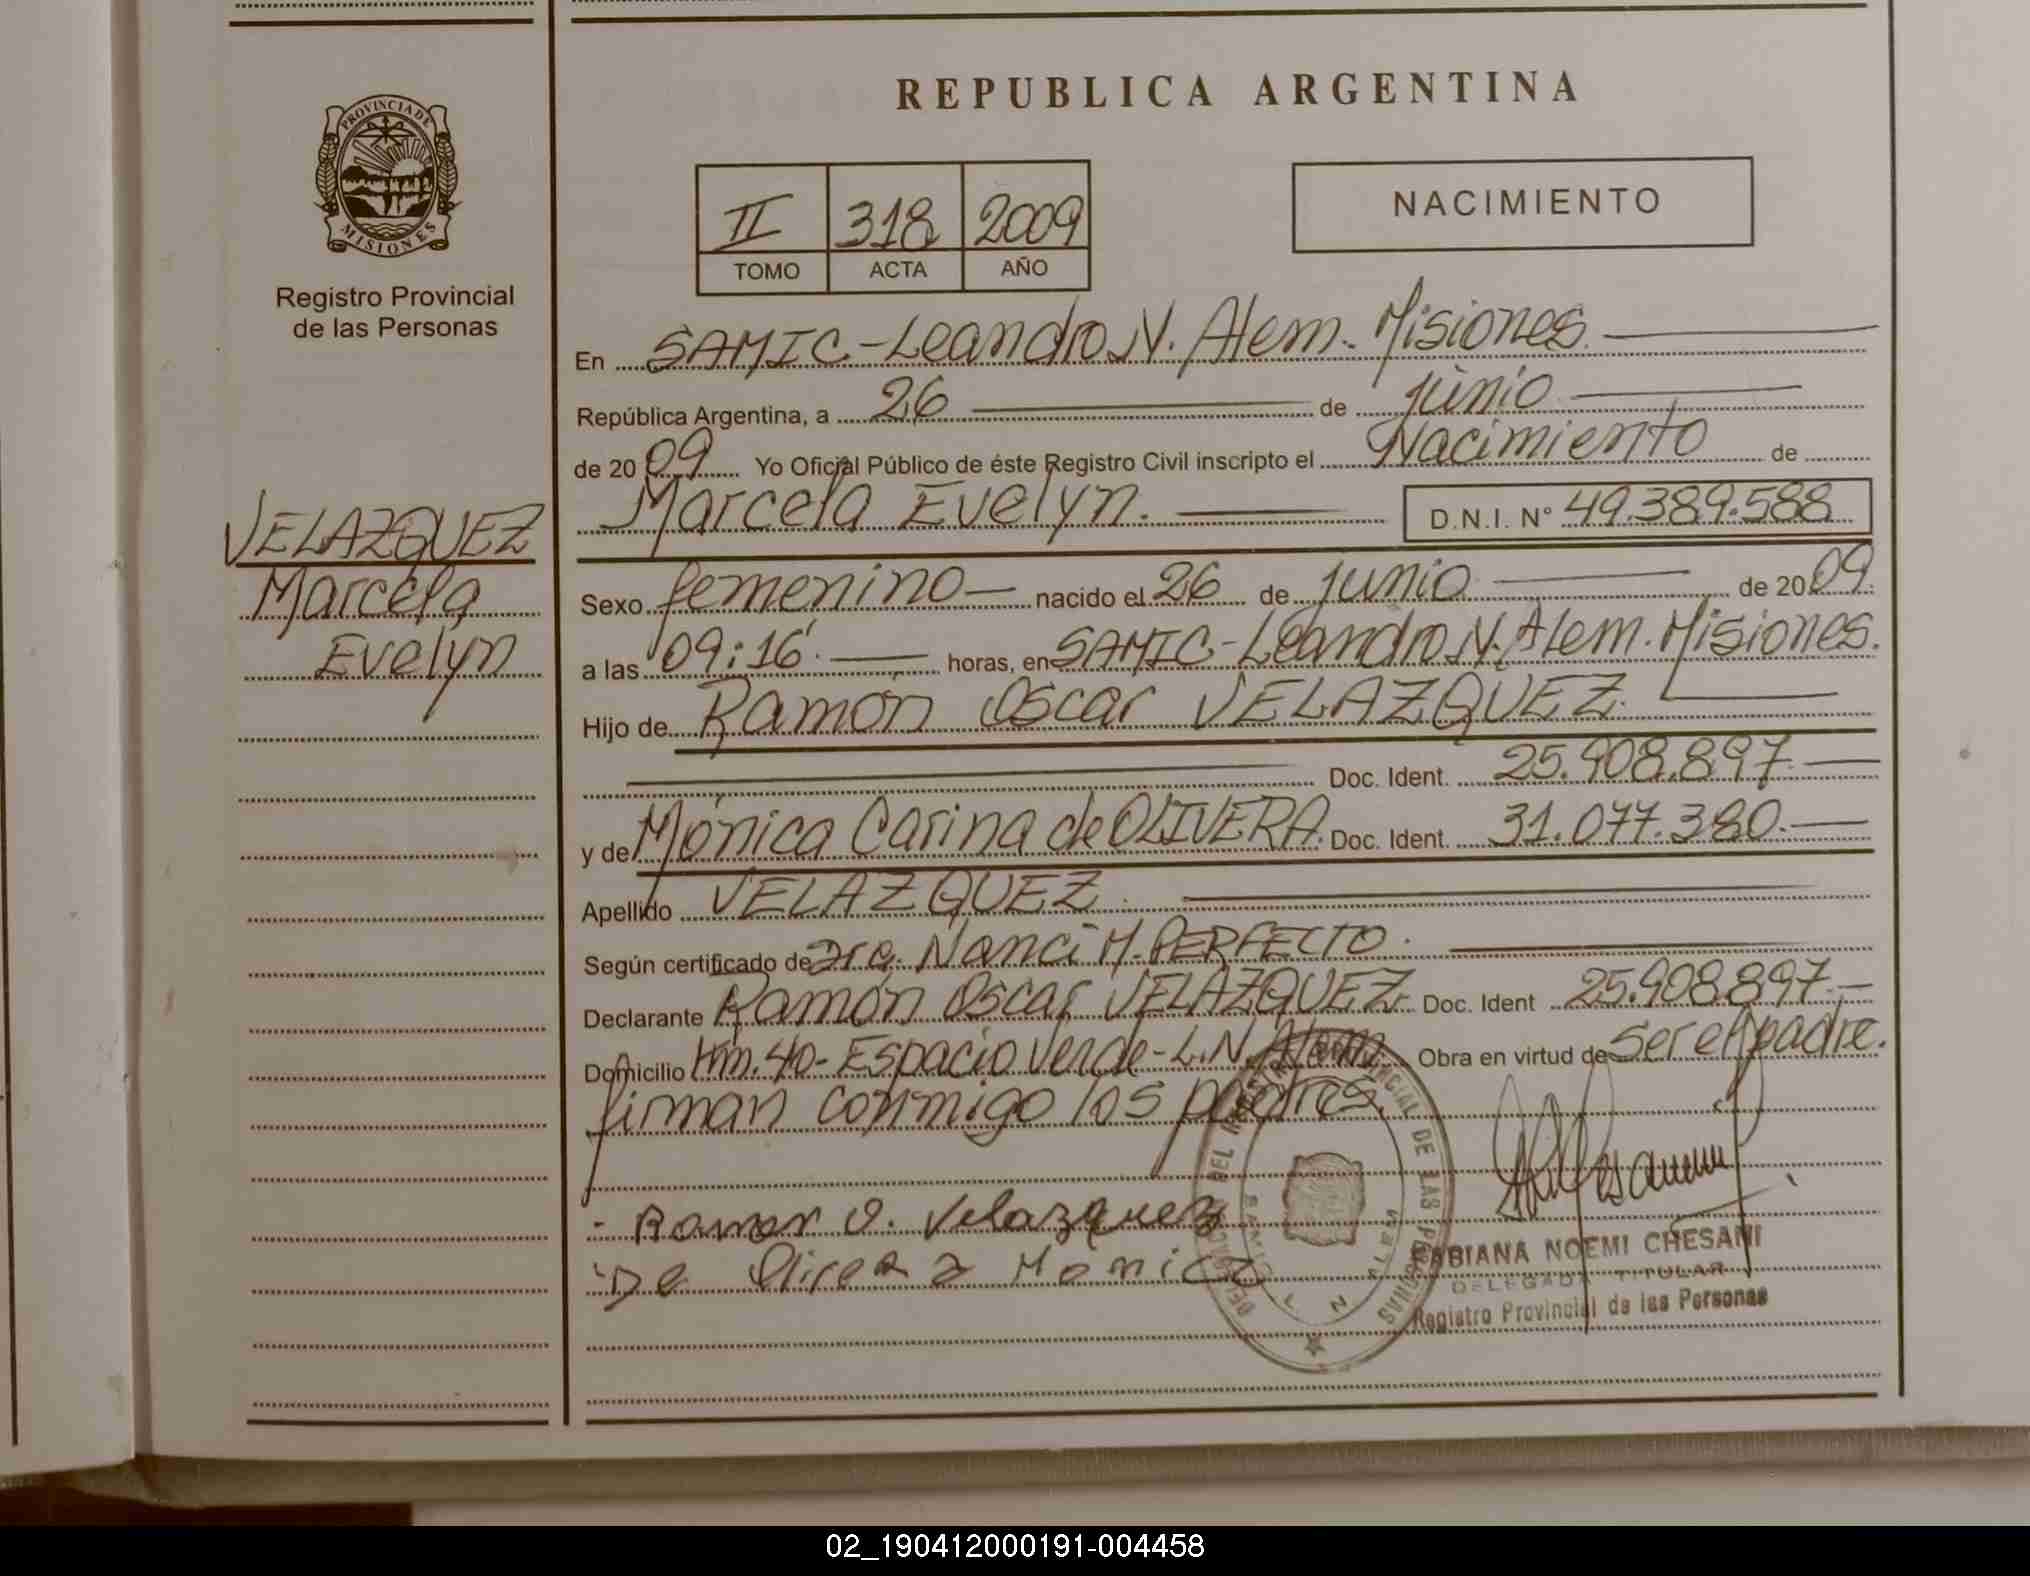 REPUBLICA ARGENTINA
PROVINCIA DE
MISIONES
Registro Provincial
de las Personas
II 318 2009
TOMO ACTA AÑO
NACIMIENTO
En SAMIC-Leandro N. Alem. Misiones.
República Argentina, a 26 de junio
de 2009 Yo Oficial Público de éste Registro Civil inscripto el Nacimiento de
Marcela Evelyn. D.N.I. N° 49.389.588
VELAZQUEZ
Marcela
Evelyn
Sexo femenino nacido el 26 de junio de 2009.
a las 09:16' horas, en SAMIC-Leandro N. Alem. Misiones.
Hijo de Ramón Oscar VELAZQUEZ.
Doc. Ident. 25.908.897.
y de Mónica Carina de OLIVERA. Doc. Ident. 31.077.380.
Apellido VELAZQUEZ.
Según certificado de Nanci M. PERFECTO.
Declarante Ramón Oscar VELAZQUEZ. Doc. Ident 25.908.897.
Domicilio Km. 40- Espacio Verde-L.N. Alem. Obra en virtud de ser el padre.
firman conmigo los padres.
Ramon O. Velazquez
De Monica
FABIANA NOEMI CHESANI
DELEGADA TITULAR
Registro Provincial de las Personas
02_190412000191-004458